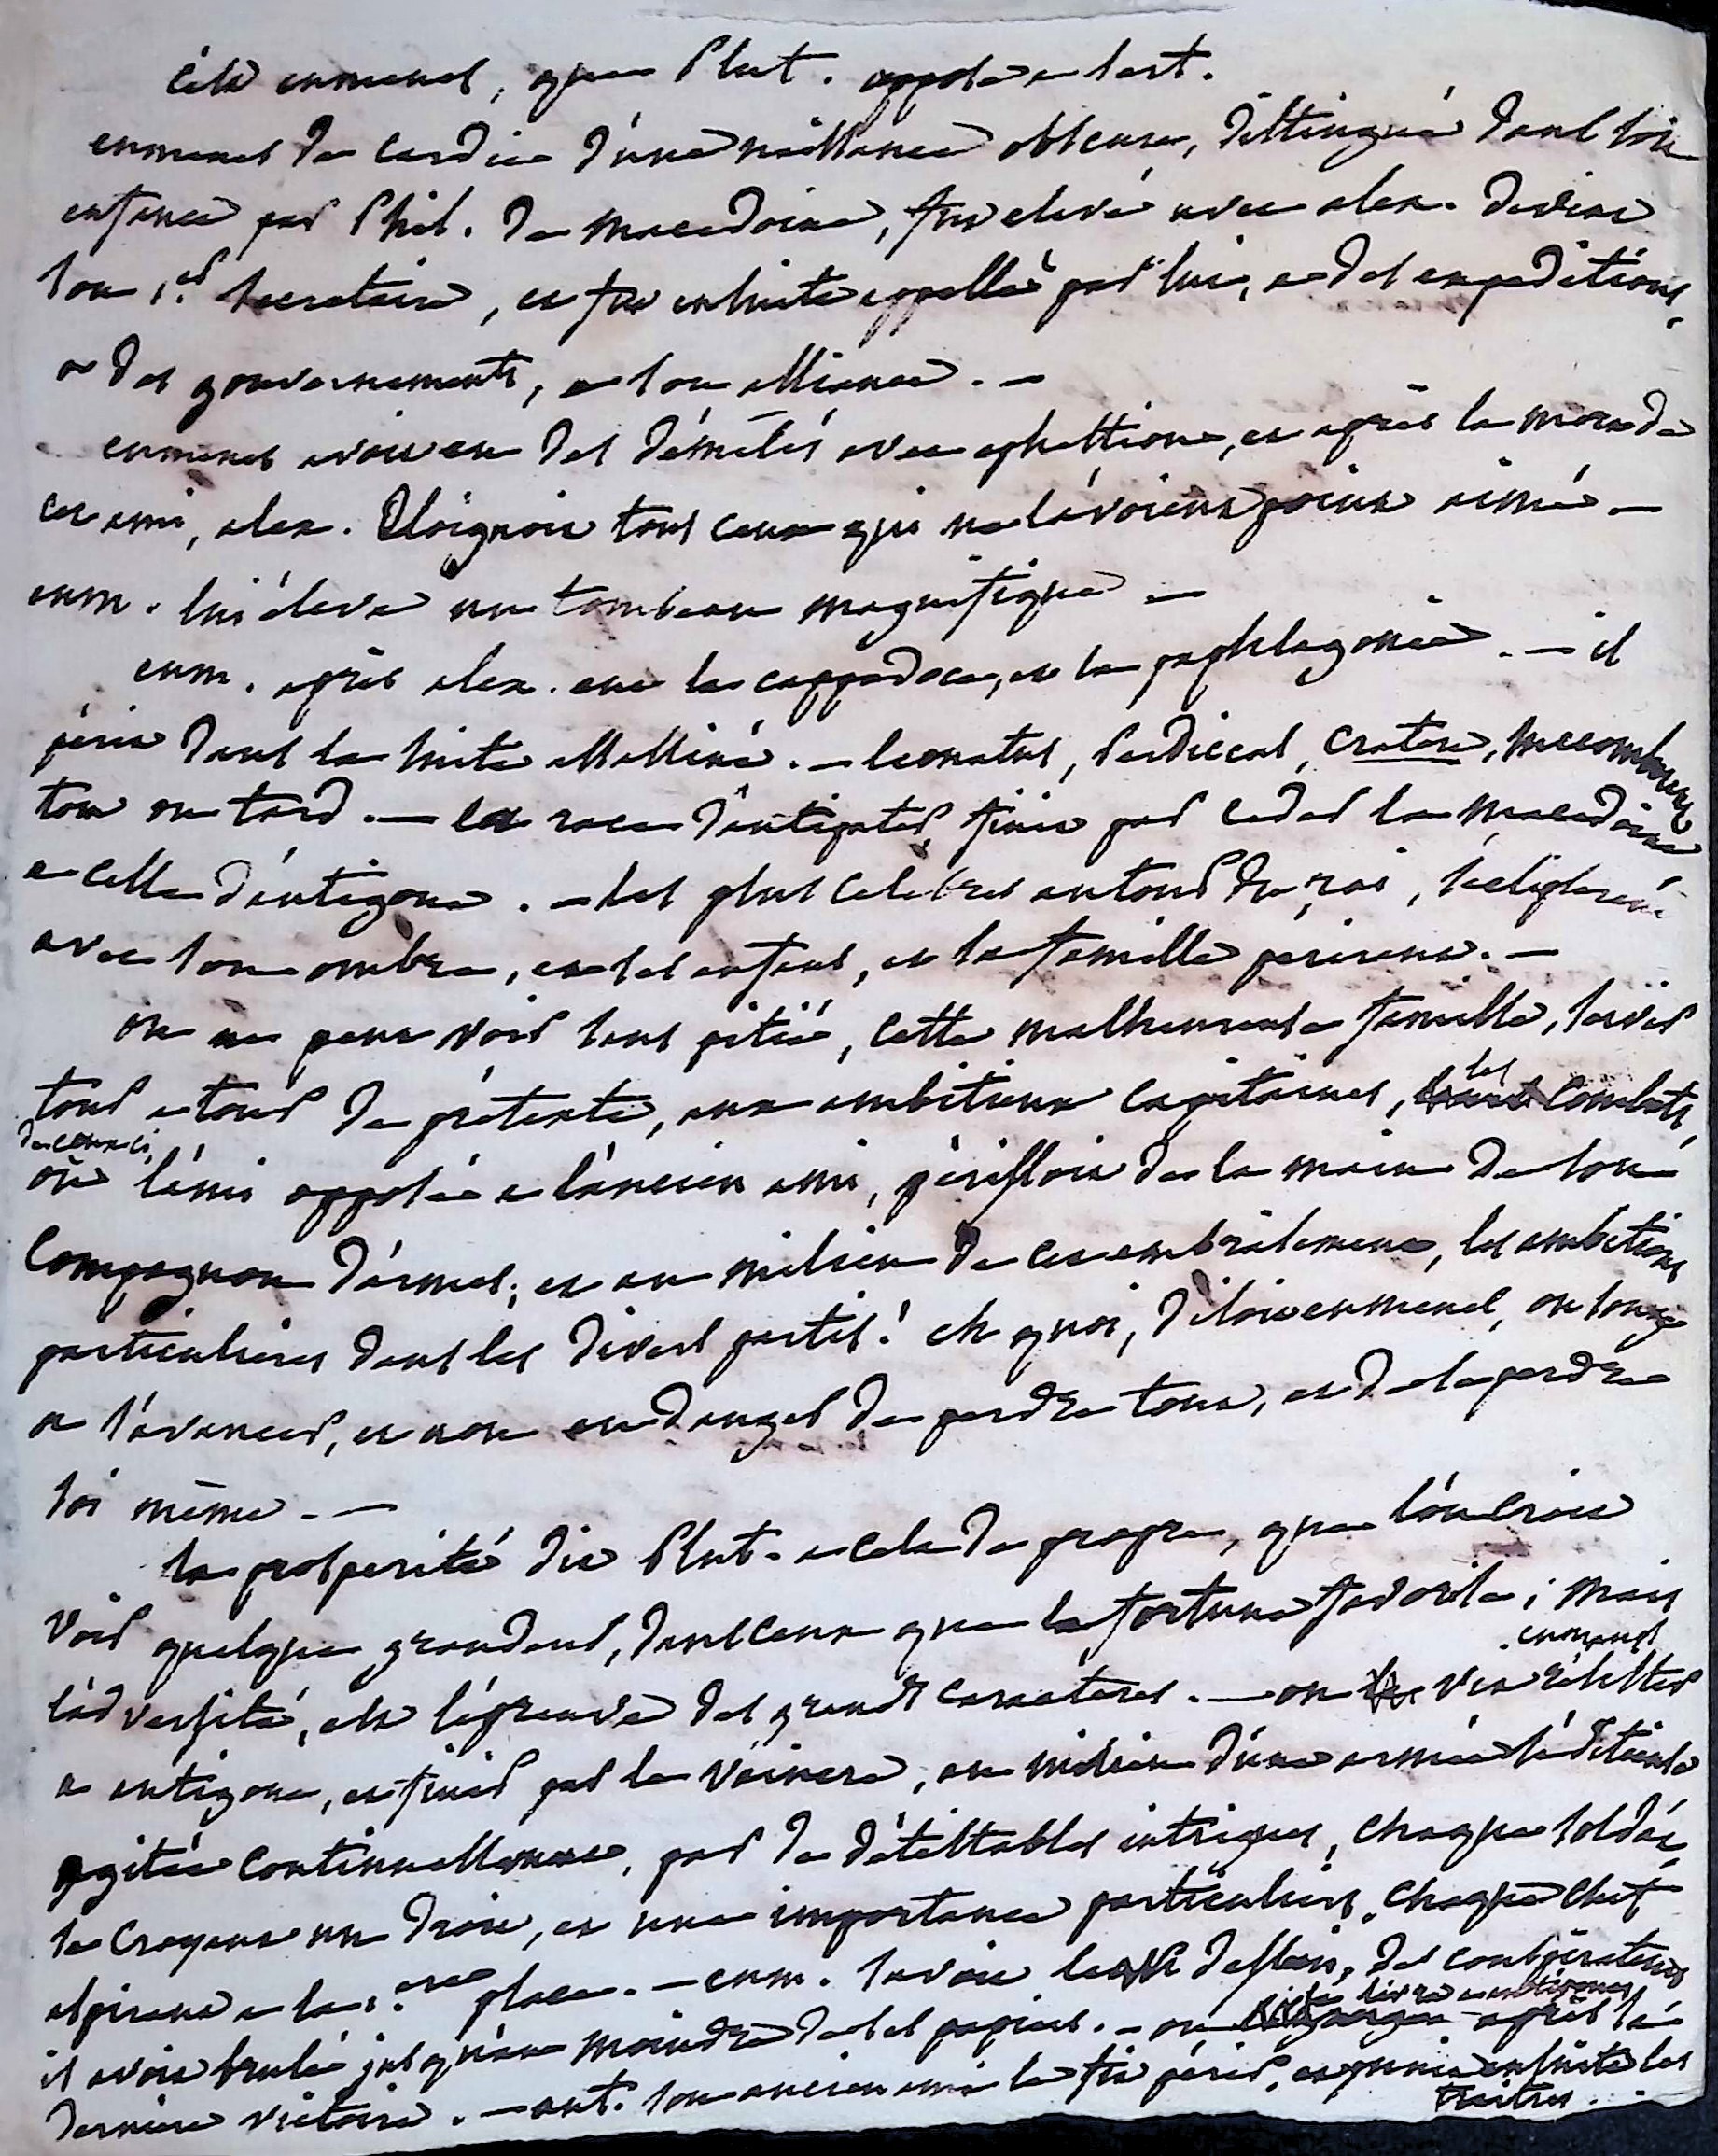 C'est eumenes, que Plut. oppose a sert.
eumenes de Cardie d'une naissance obscure, distingué dans son
enfance par Phil. de macedoine, fut elevé avec alex. devint
son 1.er secretaire, et fut ensuite appellé par lui, a des expeditions,
a des gouvernements, a son alliance. —
eumenes avoit eu des démélés avec ephestion, et après la mort de
cet ami, alex. éloignoit tous ceux qui ne l'avoient point aimé —
eum. lui éleva un tombeau magnifique —
eum. après alex. eut la cappadoce, et la paphlagonie. — il
périt dans la suite assassiné. — leonatus, Perdiccas, Cratere, succombent
tot ou tard. — la race d'antipater, finit par ceder la macedoine
a celle d'antigone. — les plus celebres autour du roi, s'eclipserent
avec son ombre, et ses enfans, et sa famille perirent. —
on ne peut voir sans pitié, cette malheureuse famille, servir
tour a tour de prétexte, aux ambitieux capitaines, les combats,
de ceux ci,
où l'ami opposé a l'ancien ami, périssoit de la main de son
compagnon d'armes; et au milieu de cet embrâsement, les ambitions
particulieres dans les divers partis! eh quoi, disoit eumenes, on songe
a s'avancer, et non au danger de perdre tout, et de se perdre
soi même. —
la prosperité dit Plut. a cela de propre, que l'on croit
voir quelque grandeur, dans ceux que la fortune favorise; mais
l'adversité, est l'épreuve des grands caracteres. — on vit eumenes résister
a antigone, et finir par le vaincre, au milieu d'une armée séditieuse
agitée continuellement, par de détestables intrigues, chaque soldat,
se croyant un droit, et une importance particuliere, chaque chef
aspirant a la 1.ere place. — eum. savoit le dessein, des conspirateurs
il avoit brulé jusqu'au moindre de ses papiers. — on le livra a antigone après sa
derniere victoire. — ant. son ancien ami le fit périr, et punit ensuite les
traitres.